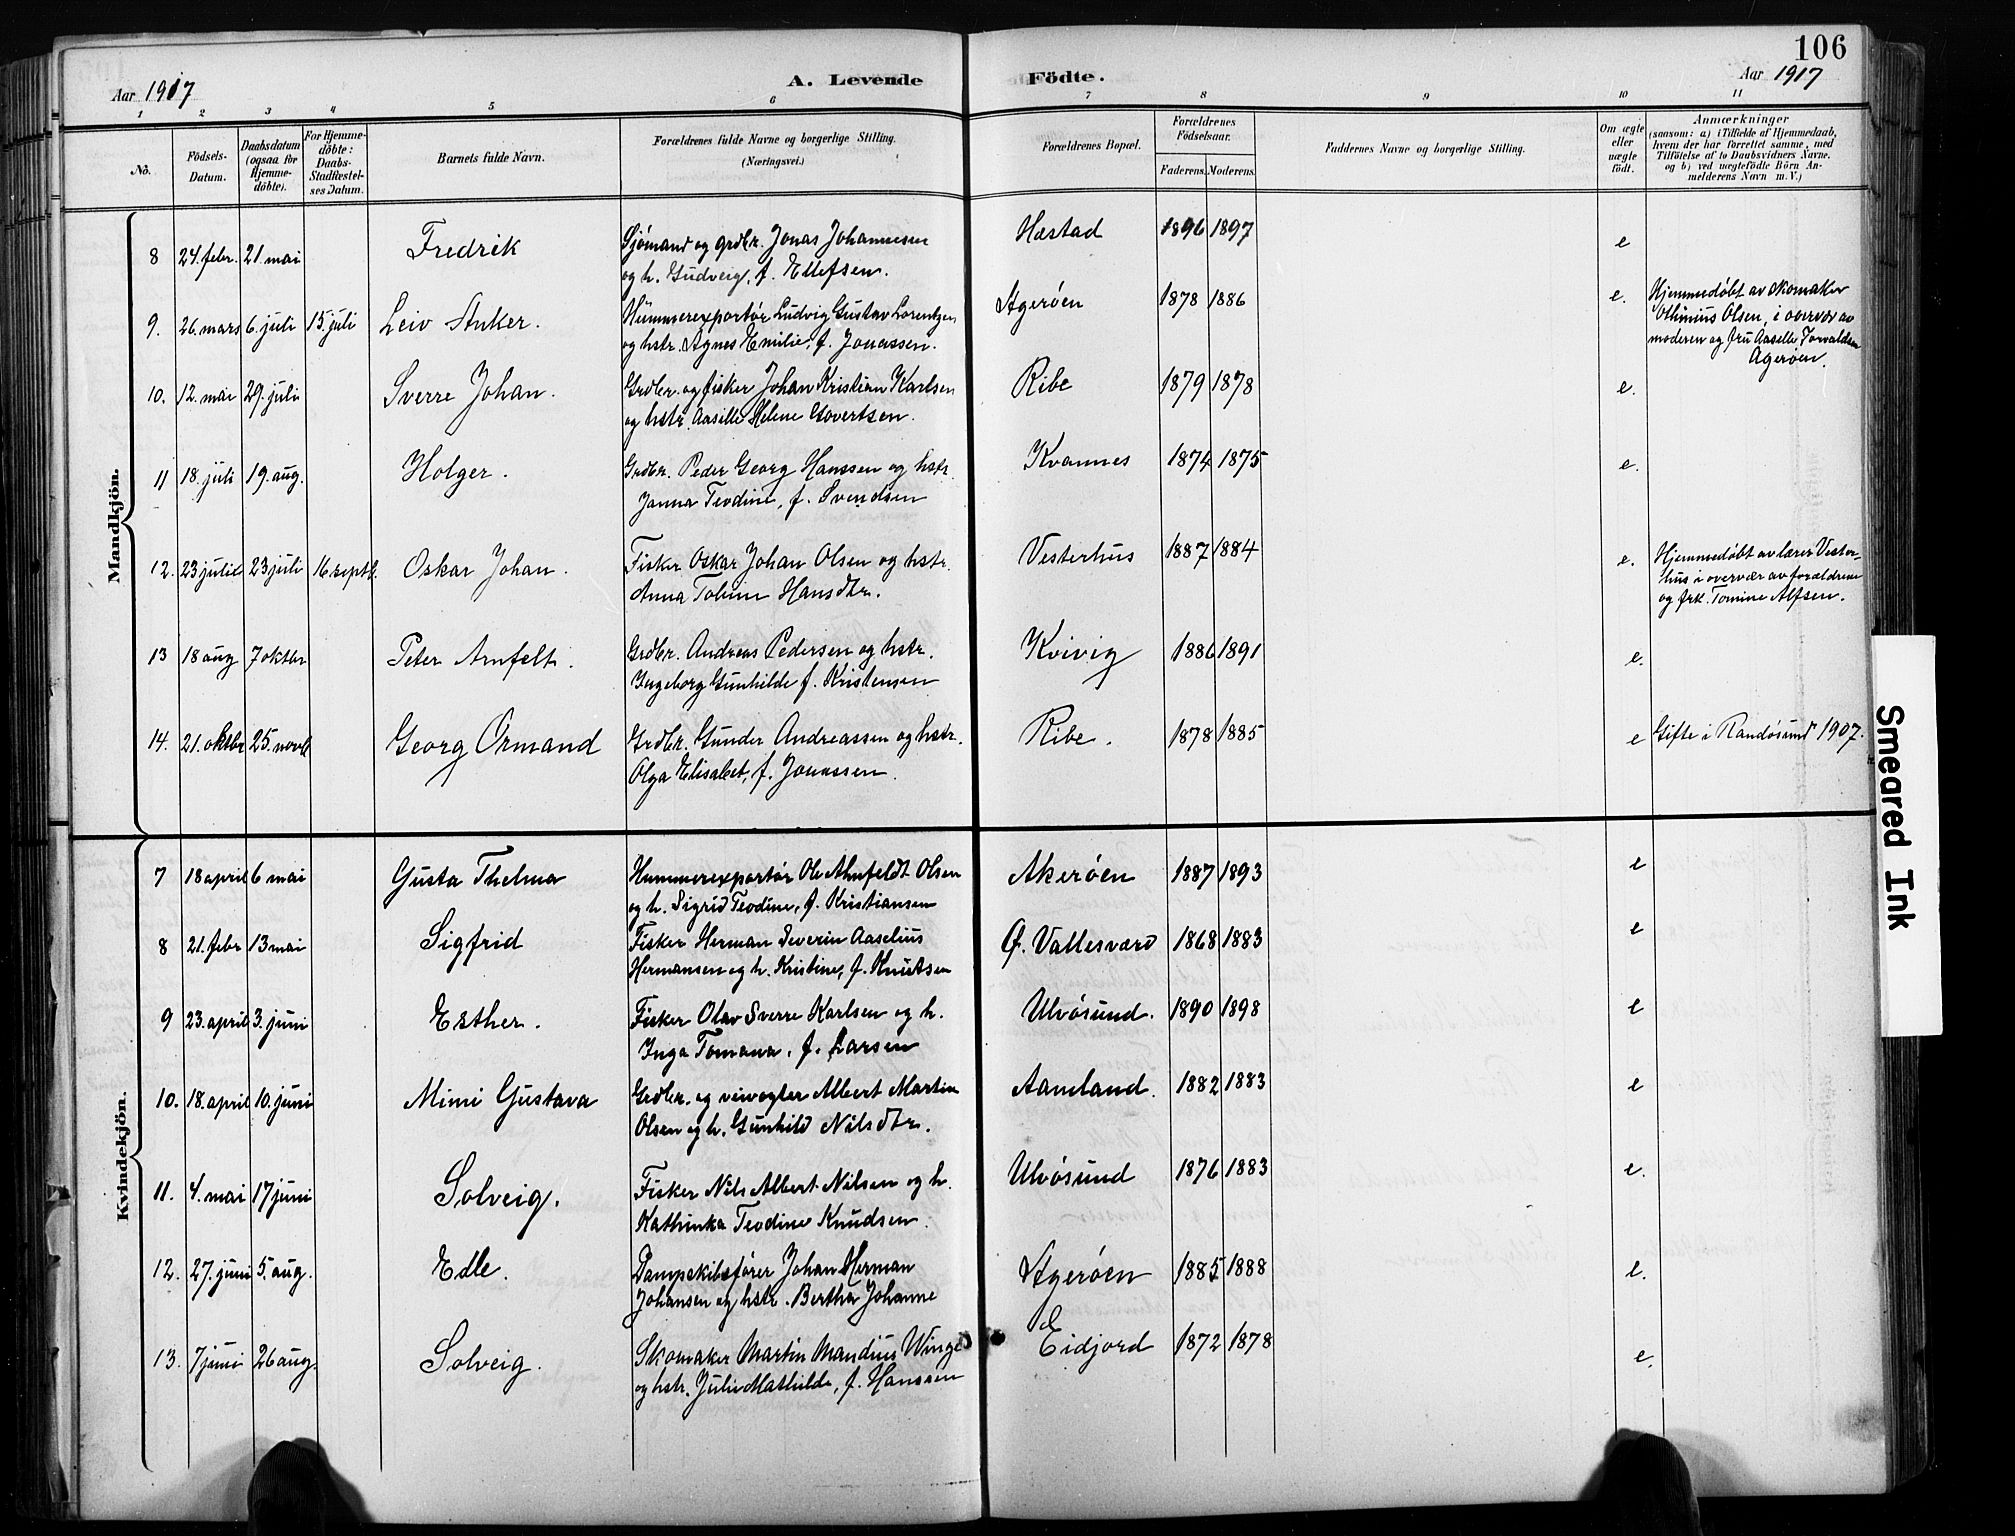 106
Aar 1917
A. Levende
Födte.
Aar 1917
1 2 3 4 5 6 7 8 9 10 11
No.
Födsels-
Datum.
Daabsdatum
(ogsaa for
Hjemme-
döbte).
For Hjemme-
döbte:
Daabs-
Stadfæstel-
ses Datum.
Barnets fulde Navn.
Forældrenes fulde Navne og borgerlige Stilling.
(Næringsvei.)
Forældrenes Bopæl.
Forældrenes
Födselsaar.
Faderens. Moderens.
Faddernes Navne og borgerlige Stilling.
Om ægte
eller
uægte
födt.
Anmærkninger
(saasom: a) i Tilfælde af Hjemmedaab,
hvem der har forrettet samme, med
Tilföielse af to Daabsvidners Navne,
og b) ved uægtefödte Börn An-
melderens Navn m. V.)
Mandkjön.
8 24. febr. 21. mai Fredrik
Sjømand og grdbr. Jonas Johannesen
og h. Gudveig, f. Ellefsen.
Hæstad 1896 1897 e
9. 26. mars 6. juli 15. juli Leiv Anker.
Hummerexportør Ludvig Gustav Lorentzen
og hstr. Agnes Emilie, f. Jonassen.
Agerøen 1878 1886 e.
Hjemmedøbt av skomaker
Othinius Olsen, i overvær av
moderen og fru Aaselle Torvaldsen
Agerøen.
10. 12. mai 29. juli Sverre Johan.
Grdbr. og fisker Johan Kristian Karlsen
og hstr. Aasille Helene Govertsen.
Ribe 1879 1878 e.
11 18. juli 19. aug. Holger.
Grdbr. Peder Georg Hanssen og hstr.
Janna Teodine, f. Svendsen
Kvannes 1874 1875 e.
12. 23 juli 23 juli 16 septb. Oskar Johan.
Fisker Oskar Johan Olsen og hstr.
Anna Tobine Hansdtr.
Vesterhus 1887 1884 e.
Hjemmedøbt av lærer Vester-
hus i overvær av forældrene
og frk. Tomine Alfsen.
13 18 aug 7 oktbr Peter Arnfelt.
Grdbr. Andreas Pedersen og hstr.
Ingeborg Gunhilde f. Kristensen
Kvivig 1886 1891 e.
14. 21. oktbr 25. novb Georg Ormand
Grdbr. Gunder Andreassen og hstr.
Olga Elisabet, f. Jonassen.
Ribe. 1878 1885 e Gifte i Randøsund 1907.
Kvindekjön.
7 18 april 6 mai Gusta Thelma
Hummerexportør Ole Arnfeldt Olsen
og h. Sigrid Teodine, f. Kristiansen
Akerøen 1887 1893 e
8 21. febr 13 mai Sigfrid
Fisker Herman Severin Aaselius
Hermansen og h. Kristine, f. Knutsen
Ø. Vallesværd 1868 1883 e
9 23. april 3. juni Esther.
Fisker Olav Sverre Karlsen og h.
Inga Tomana. f. Larsen
Ulvøsund. 1890 1898 e
10. 18. april 10. juni Mimi Gustava
Grdbr. og veivogter Albert Martin
Olsen og h. Gunhild Nilsdtr.
Aamland. 1882 1883 e
11. 4. mai 17 juni Solveig.
Fisker Nils Albert Nilsen og h.
Kathinka Teodine Knudsen.
Ulvøsund 1876 1883 e.
12. 27. juni 5. aug. Edle.
Dampskibsfører Johan Herman
Johansen og hstr. Bertha Johanne
Agerøen 1885 1888 e.
13. 7 juni 26 aug. Solveig.
Skomaker Martin Mandius Winge
og hstr. Julie Mathilde, f. Hanssen
Eidjord 1872 1878 e.
Smeared Ink